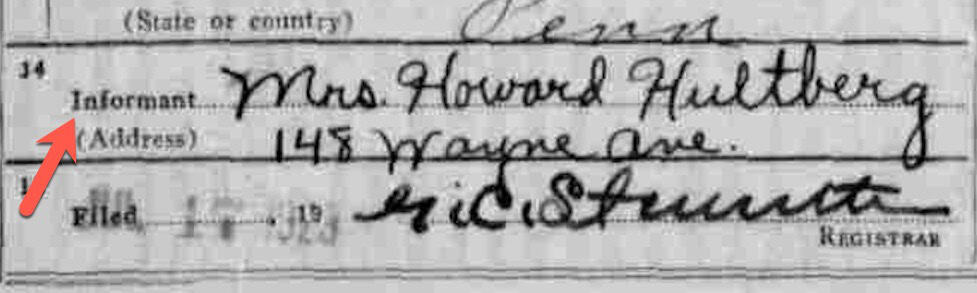 (State or country) Penn
14 Informant Mrs. Howard Hultberg
(Address) 148 Wayne Ave.
Filed 17, 19
REGISTRAR